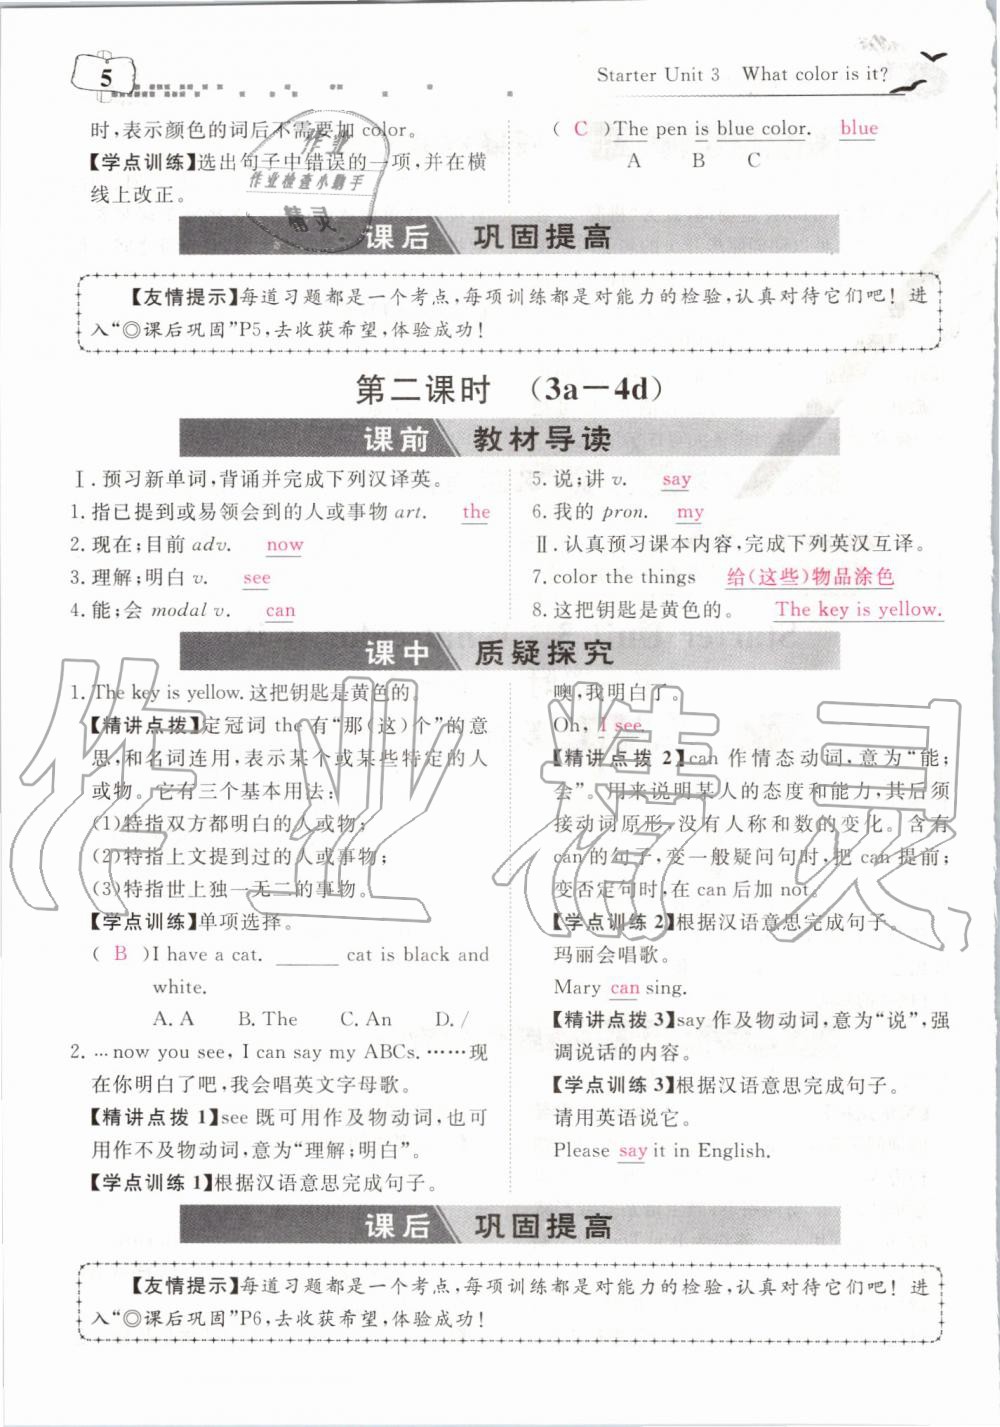 5
Starter Unit 3 What color is it?
时,表示颜色的词后不需要加 color。
【学点训练】选出句子中错误的一项,并在横
线上改正。
( C )The pen is blue color. blue
A B C
作业
作业检查小助手
精灵
课后 巩固提高
【友情提示】每道习题都是一个考点,每项训练都是对能力的检验,认真对待它们吧！进
入“◎课后巩固”P5,去收获希望,体验成功！
第二课时 (3a—4d)
课前 教材导读
Ⅰ.预习新单词,背诵并完成下列汉译英。
1. 指已提到或易领会到的人或事物 art. the
2. 现在;目前 adv. now
3. 理解;明白 v. see
4. 能;会 modal v. can
5. 说;讲 v. say
6. 我的 pron. my
Ⅱ.认真预习课本内容,完成下列英汉互译。
7. color the things 给(这些)物品涂色
8. 这把钥匙是黄色的。 The key is yellow.
课中 质疑探究
1. The key is yellow. 这把钥匙是黄色的。
【精讲点拨】定冠词 the 有“那(这)个”的意
思,和名词连用,表示某个或某些特定的人
或物。它有三个基本用法:
(1)特指双方都明白的人或物;
(2)特指上文提到过的人或事物;
(3)特指世上独一无二的事物。
【学点训练】单项选择。
( B )I have a cat. ______ cat is black and
white.
A. A B. The C. An D. /
2. … now you see, I can say my ABCs. ……现
在你明白了吧,我会唱英文字母歌。
【精讲点拨 1】see 既可用作及物动词,也可
用作不及物动词,意为“理解;明白”。
【学点训练 1】根据汉语意思完成句子。
噢,我明白了。
Oh, I see.
【精讲点拨 2】can 作情态动词,意为“能;
会”。用来说明某人的态度和能力,其后须
接动词原形,没有人称和数的变化。含有
can 的句子,变一般疑问句时,把 can 提前;
变否定句时,在 can 后加 not。
【学点训练 2】根据汉语意思完成句子。
玛丽会唱歌。
Mary can sing.
【精讲点拨 3】say 作及物动词,意为“说”,强
调说话的内容。
【学点训练 3】根据汉语意思完成句子。
请用英语说它。
Please say it in English.
作业精灵
课后 巩固提高
【友情提示】每道习题都是一个考点,每项训练都是对能力的检验,认真对待它们吧！进
入“◎课后巩固”P6,去收获希望,体验成功！